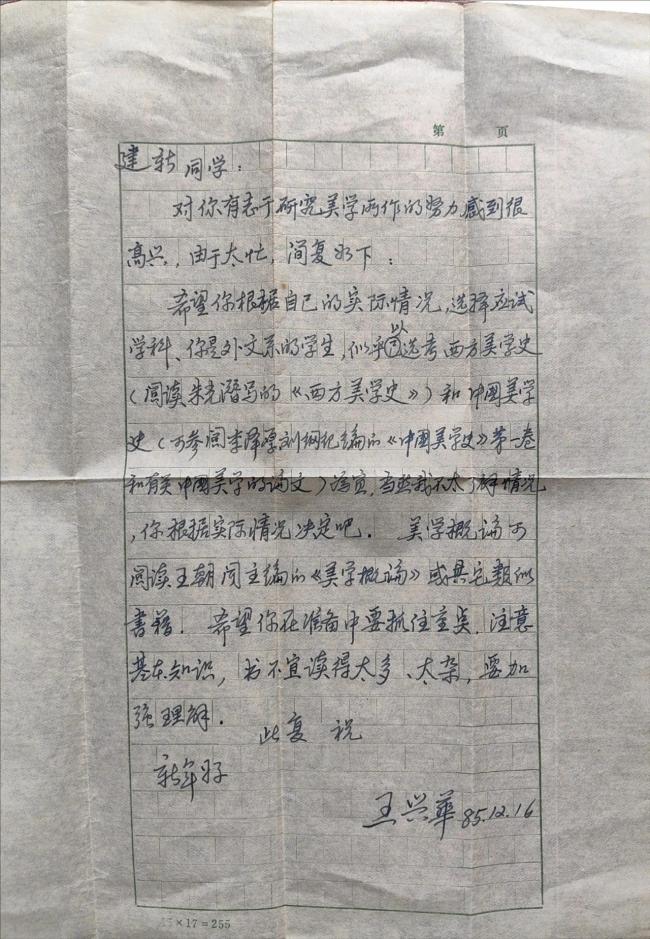 第 页
建新同学：
对你有志于研究美学所作的努力感到很
高兴，由于太忙，简复如下：
希望你根据自己的实际情况，选择应试
学科、你是外文系的学生，似乎以选考西方美学史
（阅读朱光潜写的《西方美学史》）和中国美学
史（可参阅李泽厚刘纲纪编的《中国美学史》第一卷
和有关中国美学的论文）为宜，当然我不太了解情况
，你根据实际情况决定吧． 美学概论可
阅读王朝闻主编的《美学概论》或其它类似
书籍． 希望你在准备中要抓住重点．注意
基本知识，书不宜读得太多、太杂，要加
强理解．
此复 祝
新年好
王兴华 85.12.16
15×17=255